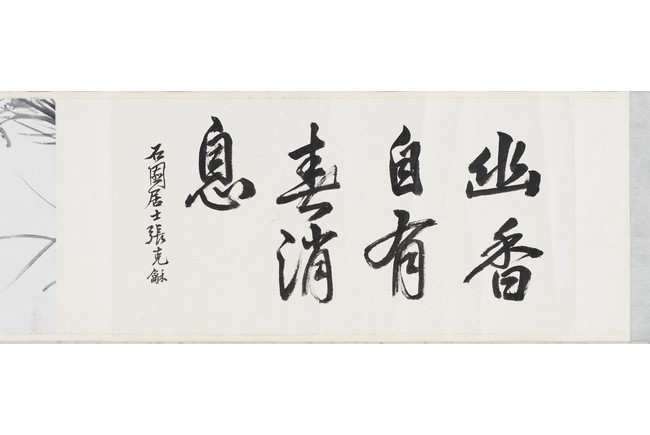 幽香
自有
春消
息
石園居士張克龢